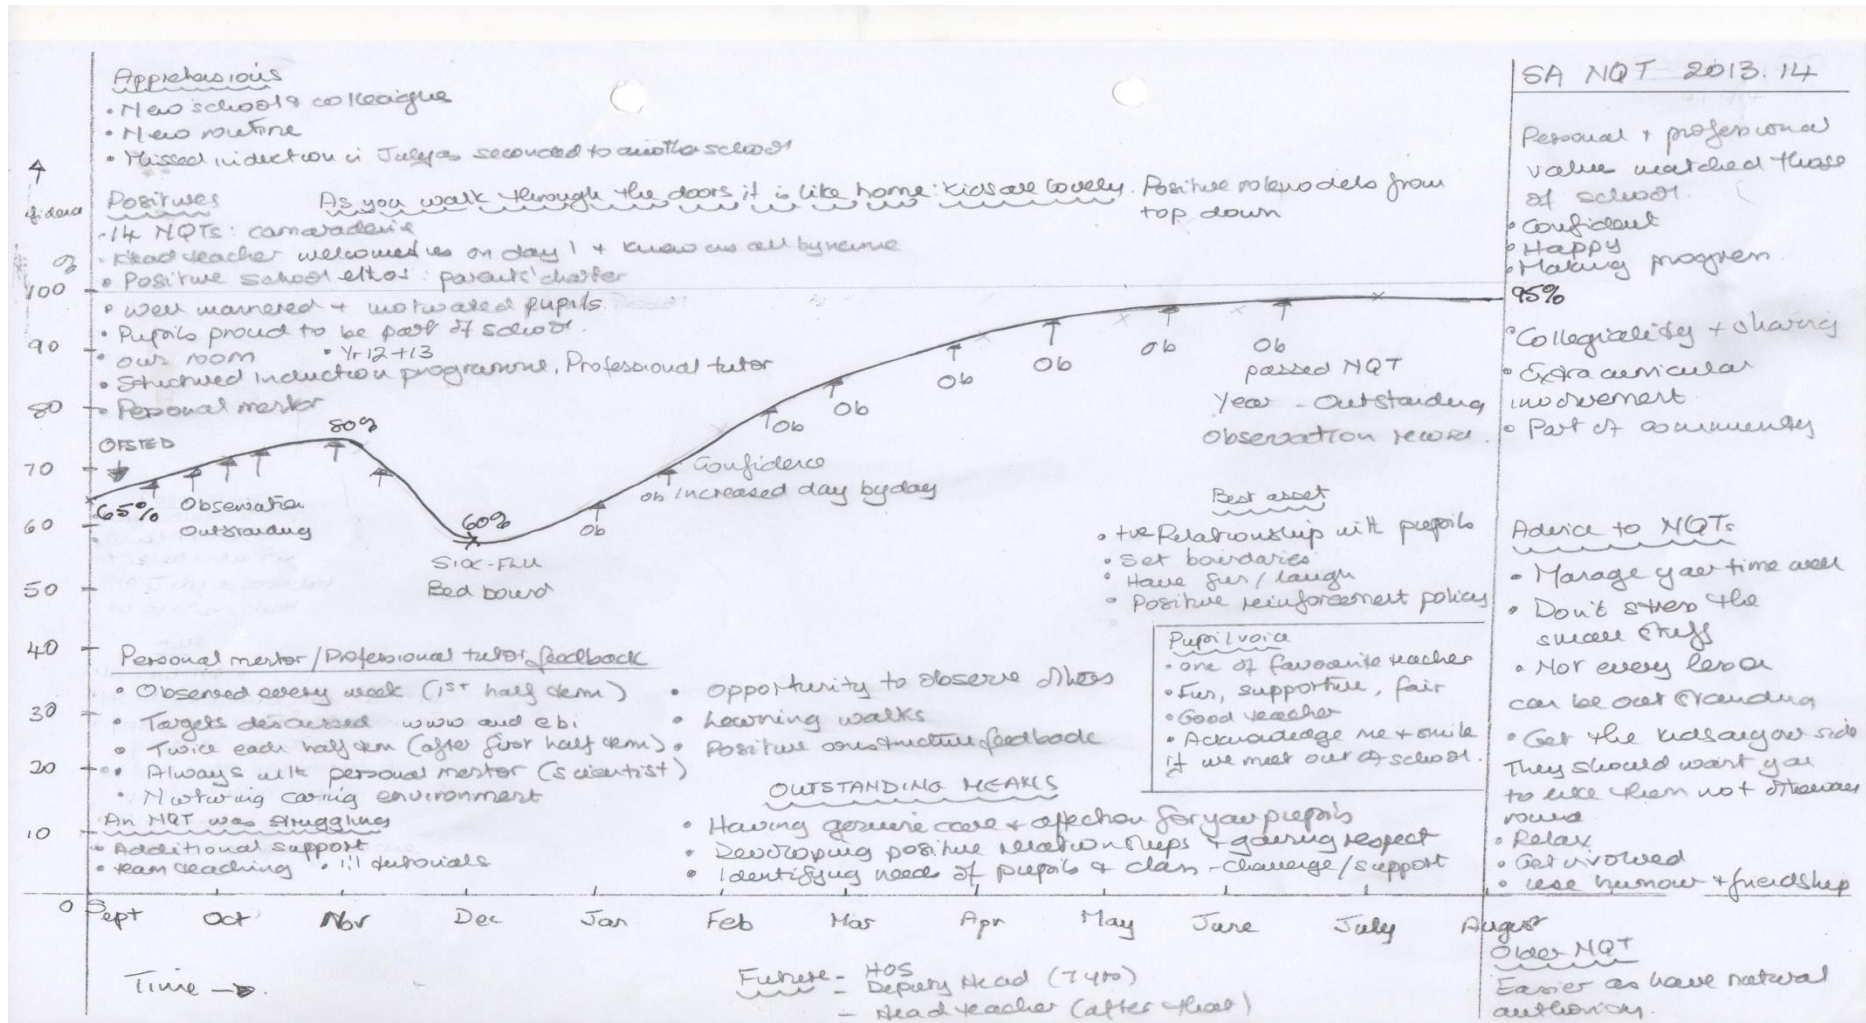 SA NQT 2013.14
Apprehensions
• New school & colleague
• New routine
• Missed induction in July as seconded to another school
Positives
As you walk through the doors it is like home: kids are lovely. Positive role models from
top down
• 14 NQTs: camaraderie
• Head teacher welcomed us on day 1 + knew us all by name
• Positive school ethos: parents' charter
• well mannered + motivated pupils
• Pupils proud to be part of school.
• own room • Yr 12+13
• Structured Induction programme, Professional tutor
• Personal mentor
%
100
90
80
70
60
50
40
30
20
10
0
OFSTED
65%
80%
60%
95%
Observation
Outstanding
Sick-FLU
Bed bound
Ob
Ob
Confidence
increased day by day
Ob
Ob
Ob
Ob
Ob
Ob
passed NQT
Year - Outstanding
Observation record.
Best asset
• +ve Relationship with pupils
• Set boundaries
• Have fun / laugh
• Positive reinforcement policy
Pupil voice
• one of favourite teacher
• Fun, supportive, fair
• Good teacher
• Acknowledge me + smile
if we meet out of school.
Personal mentor/Professional tutor feedback
• Observed every week (1st half term)
• Targets discussed www and ebi
• Twice each half term (after first half term)
• Always with personal mentor (scientist)
• Nurturing caring environment
An NQT was struggling
• Additional support
• team teaching • 1:1 tutorials
• opportunity to observe others
• Learning walks
• Positive constructive feedback
OUTSTANDING MEANS
• Having genuine care + affection for your pupils
• Developing positive relationships + gaining respect
• Identifying needs of pupils & class - challenge/support
Sept Oct Nov Dec Jan Feb Mar Apr May June July August
Time →
Future - HOS
- Deputy Head (7 yrs)
- Head teacher (after that)
Personal + professional
value matched those
of school.
• Confident
• Happy
• Making progress
• Collegiality + sharing
• Extra curricular
involvement
• Part of community
Advice to NQTs
• Manage your time well
• Don't stress the
small stuff
• Not every lesson
can be outstanding
• Get the kids on your side
They should want you
to like them not otherway
round
• Relax
• Get involved
• use humour + friendship
Older NQT
Easier as have natural
authority.